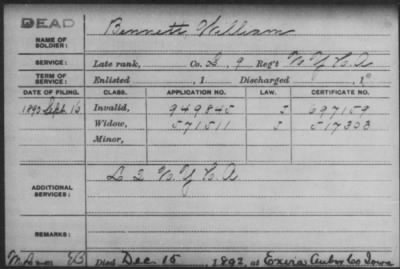 DEAD
NAME OF SOLDIER: Bennett, William
SERVICE: Late rank, Co. L, 9 Reg't N.Y.H.A
TERM OF SERVICE: Enlisted , 1 Discharged , 1
DATE OF FILING. CLASS. APPLICATION NO. LAW. CERTIFICATE NO.
1890 Sept 13 Invalid, 949845 J 697159
Widow, 571511 J 517333
Minor,
ADDITIONAL SERVICES: L 2 N.Y.H.A
REMARKS:
Died Dec 15, 1892, at Exira Audubon Co Iowa